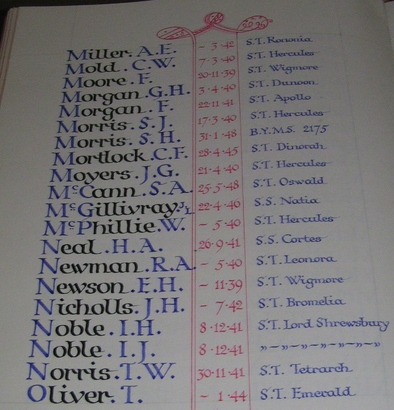 Miller. A.E. - 3·42 S.T. Rononia
Mold. C.W. 7·3·40 S.T. Hercules
Moore. F. 20·11·39 S.T. Wigmore
Morgan. G.H. 3·4·40 S.T. Dunoon
Morgan. F. 22·11·41 S.T. Apollo
Morris. S.J. 17·3·40 S.T. Hercules
Morris. S.H. 31·1·48 B.Y.M.S. 2175
Mortlock. C.F. 28·4·45 S.T. Dinorah
Moyers. J.G. 21·4·40 S.T. Hercules
McCann. S.A. 25·5·48 S.T. Oswald
McGillivray. J.L. 22·4·46 S.S. Nadia
McPhillie. W. - 5·40 S.T. Hercules
Neal. H.A. 26·9·41 S.S. Cortes
Newman. R.A. - 5·40 S.T. Leonora
Newson. E.H. - 11·39 S.T. Wigmore
Nicholls. J.H. - 7·42 S.T. Bromelia
Noble. I.H. 8·12·41 S.T. Lord Shrewsbury
Noble. I.J. 8·12·41 " - " - " - " - " - " - "
Norris. T.W. 30·11·41 S.T. Tetrarch
Oliver. T. - 1·44 S.T. Emerald